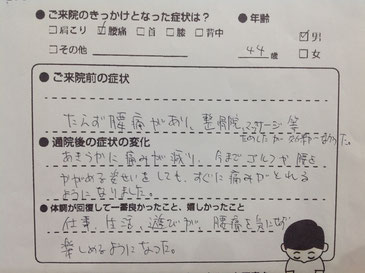 ●ご来院のきっかけとなった症状は？ ●年齢
□肩こり ☑腰痛 □首 □膝 □背中 ☑男
□その他 44歳 □女
●ご来院前の症状
たえず腰痛があり、整骨院、マッサージ等
ためしたが効果がなかった。
●通院後の症状の変化
あきらかに痛みが減り、今までゴルフが腰を
かがめる姿せいをしても、すぐに痛みがとれる
ようになりました。
●体調が回復して一番良かったこと、嬉しかったこと
仕事、生活、遊びが、腰痛を気にせず
楽しめるようになった。